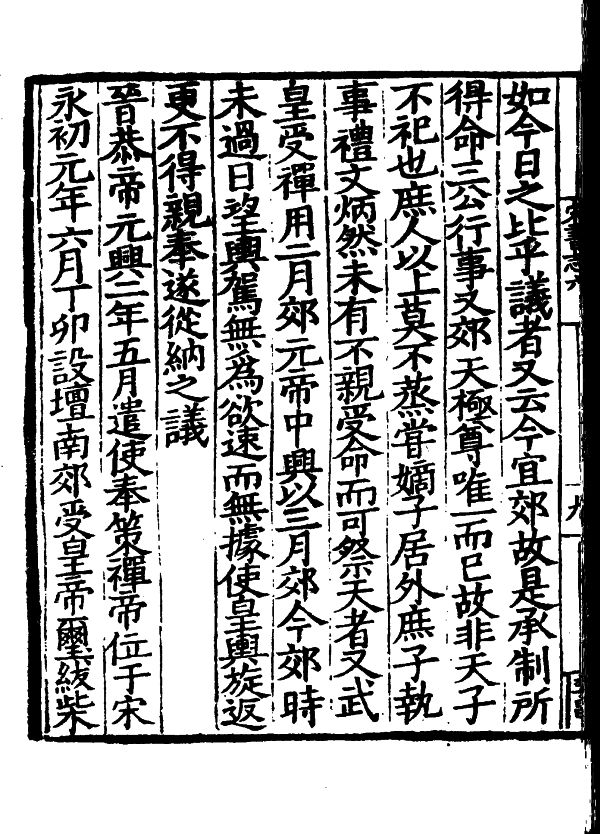 如今日之比乎議者又云今宜郊故是承制所
得命三公行事又郊天極尊唯一而已故非天子
不祀也庶人以上莫不蒸嘗嫡子居外庶子執
事禮文炳然未有不親受命而可祭天者又武
皇受禪用二月郊元帝中興以三月郊今郊時
未過日望輿駕無為欲速而無據使皇輿旋返
更不得親奉遂從納之議
晉恭帝元興二年五月遣使奉策禪帝位于宋
永初元年六月丁卯設壇南郊受皇帝璽紱柴